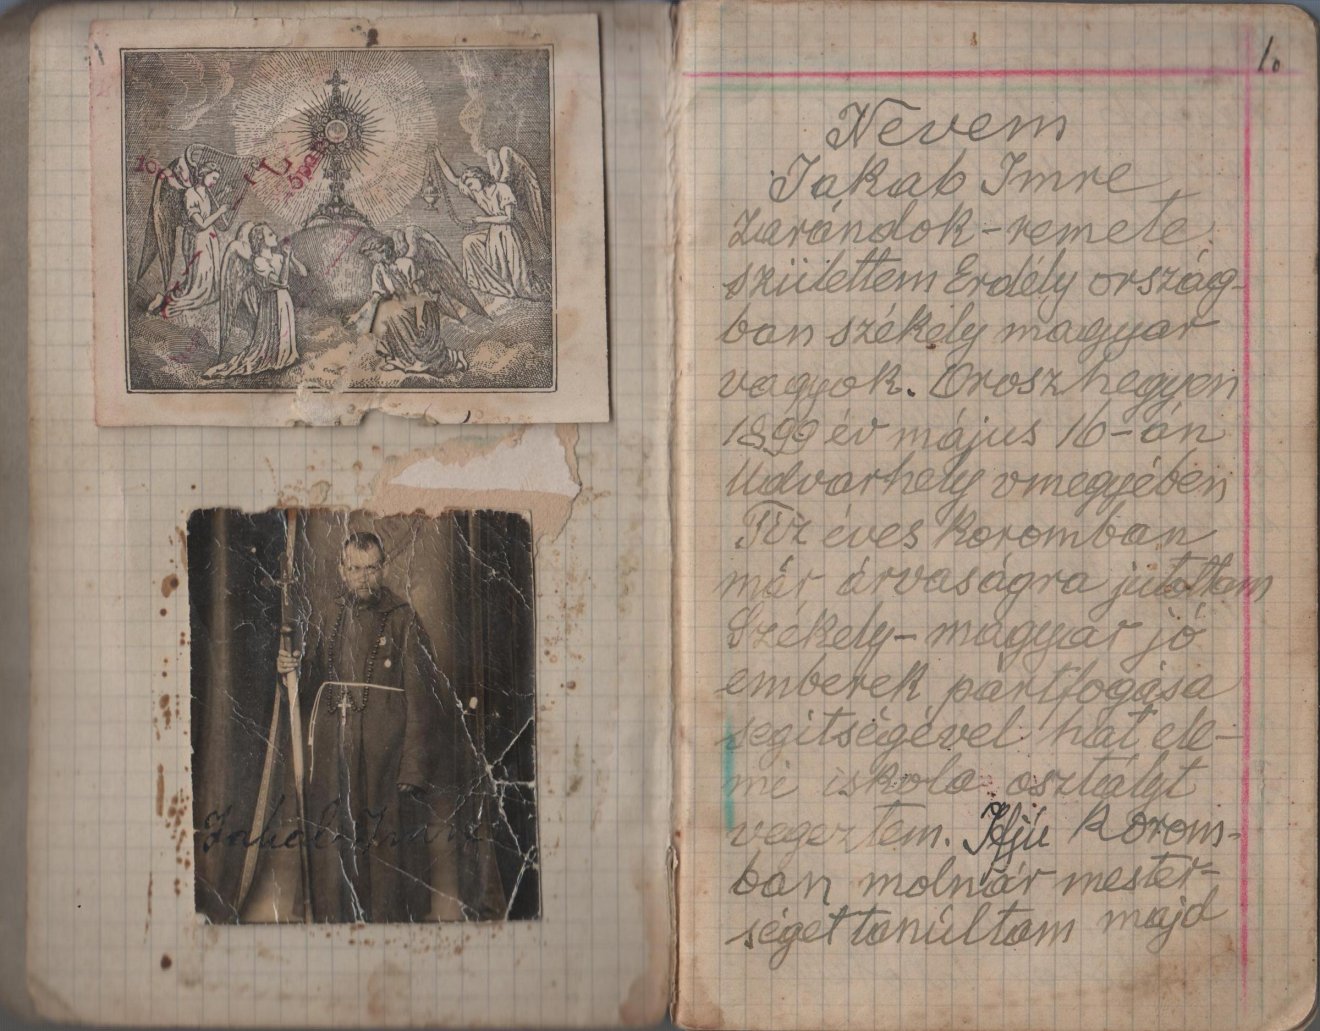 Jakab Imre
1.
Nevem
Jakab Imre
zarándok-remete
születtem Erdély ország-
ban székely magyar
vagyok. Oroszhegyen
1899 év május 16-án
Udvarhely vmegyében
Tíz éves koromban
már árvaságra jutottam
Székely-magyar jó
emberek pártfogása
segitségével hat ele-
mi iskola osztályt
vegeztem. Ifjú korom-
ban molnár mester-
séget tanúltam majd